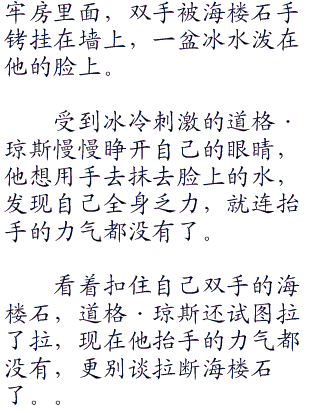 牢房里面，双手被海楼石手
铐挂在墙上，一盆冰水泼在
他的脸上。
受到冰冷刺激的道格·
琼斯慢慢睁开自己的眼睛，
他想用手去抹去脸上的水，
发现自己全身乏力，就连抬
手的力气都没有了。
看着扣住自己双手的海
楼石，道格·琼斯还试图拉
了拉，现在他抬手的力气都
没有，更别谈拉断海楼石
了。。